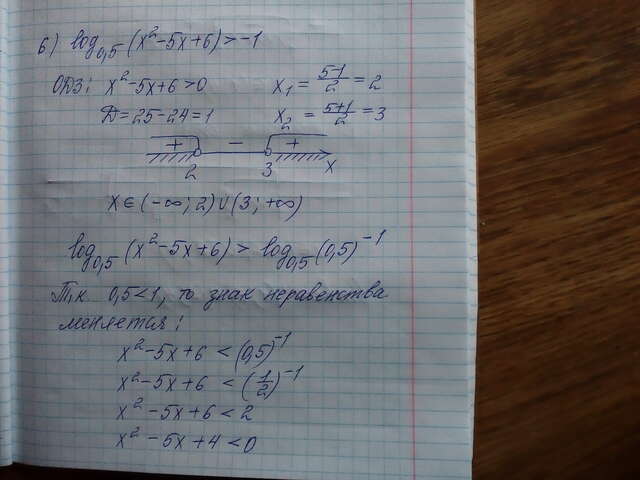 б) log₀,₅(x²-5x+6)>-1
ОДЗ: x²-5x+6>0 x₁ = (5-1)/2 = 2
Д=25-24=1 x₂ = (5+1)/2 = 3
+ - +
2 3 x
x∈(-∞; 2)∪(3; +∞)
log₀,₅(x²-5x+6) > log₀,₅(0,5)⁻¹
Т.к 0,5<1, то знак неравенства
меняется:
x²-5x+6 < (0,5)⁻¹
x²-5x+6 < (1/2)⁻¹
x²-5x+6 < 2
x²-5x+4<0